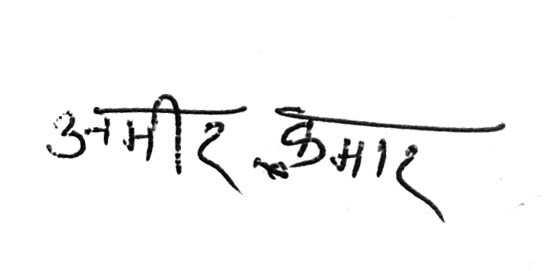 अमीर कुमार